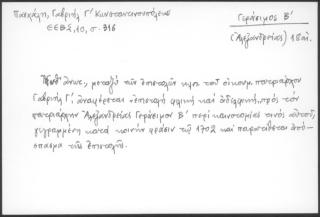 Πασχάλη, Γαβριήλ Γ' Κωνσταντινουπόλεως
ΕΕΒΣ, 10, σ. 316
Γεράσιμος Β'
(Αλεξανδρείας) 18 αι.
Ἔνθ' ἄνω, μεταξὺ τῶν ἐπιστολῶν τοῦ οἰκουμ. πατριάρχου
Γαβριήλ Γ', ἀναφέρεται ἐπιστολὴ φιλικὴ καὶ ἀδελφική, πρὸς τὸν
πατριάρχην Ἀλεξανδρείας Γεράσιμον Β' περὶ καινοτομίας τινὸς αὐτοῦ,
γεγραμμένη κατὰ κοινὴν φράσιν τῷ 1702 καὶ παρατίθεται ἀπό-
σπασμα τῆς ἐπιστολῆς.